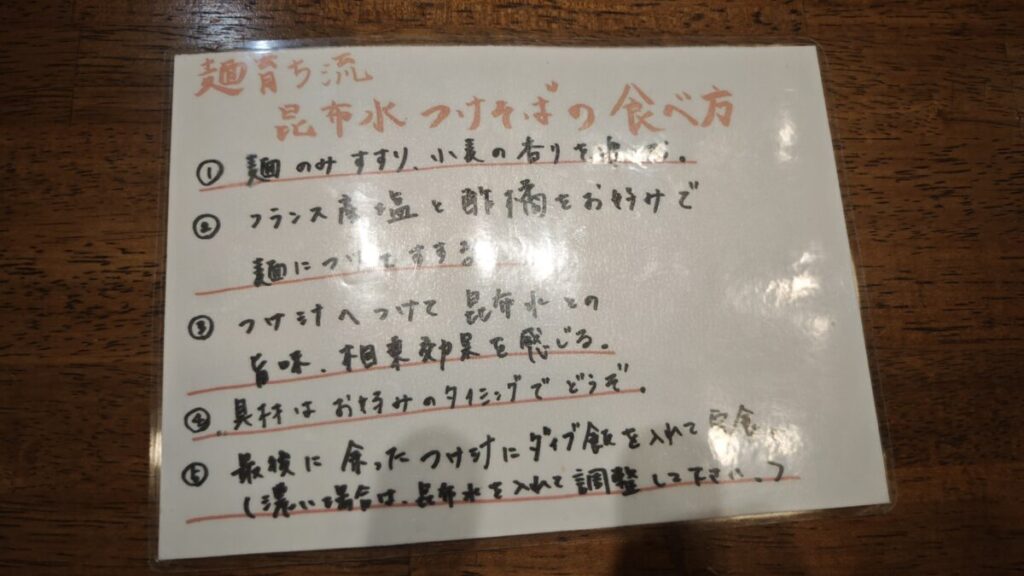 麺育ち流
昆布水つけそばの食べ方
① 麺のみすすり、小麦の香りを
② フランス産塩と酢橘をお好みで
麺につけてすする
③ つけ汁へつけて昆布水との
旨味、相乗効果を感じる。
④ 具材はお好みのタイミングでどうぞ。
⑤ 最後に余ったつけ汁にダイブ飯を入れて完食。
(濃い場合は、昆布水を入れて調整して下さい。)